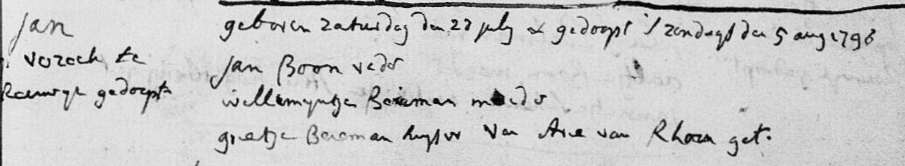 Jan
verzocht te
gedoopt
geboren zaturdag den 28 july & gedoopt 's zondags den 5 aug 1798
Jan Boon vader
willemyntje Boreman moeder
grietje Boreman huysvr van Arie van Rhoon get.